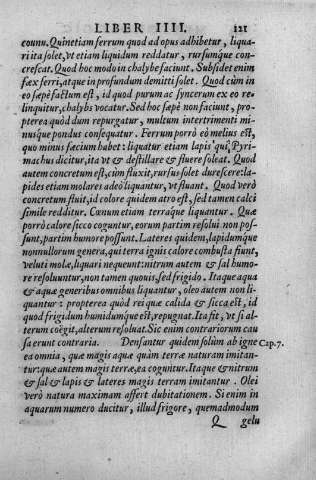 LIBER IIII. 121
coeunt. Quinetiam ferrum quod ad opus adhibetur, liqua-
ri ita solet, vt etiam liquidum reddatur, rursumque con-
crescat. Quod hoc modo in chalybe faciunt. Subsidet enim
fæx ferri, atque in profundum demitti solet. Quod cùm in
eo sæpè factum est, id quod purum ac syncerum ex eo re-
linquitur, chalybs vocatur. Sed hoc sæpè non faciunt, pro-
pterea quòd dum repurgatur, multum intertrimenti mi-
nusque pondus consequatur. Ferrum porrò eò melius est,
quo minus fæcium habet: liquatur etiam lapis qui Pyri-
machus dicitur, ita vt & destillare & fluere soleat. Quod
autem concretum est, cùm fluxit, rursus solet durescere: la-
pides etiam molares adeò liquantur, vt fluant. Quod verò
concretum fluit, id colore quidem atro est, sed tamen calci
simile redditur. Cænum etiam terráque liquantur. Quæ
porrò calore sicco coguntur, eorum partim resolui non pos-
sunt, partim humore possunt. Lateres quidem, lapidumque
nonnullorum genera, qui terra ignis calore combusta fiunt,
veluti molæ, liquari nequeunt: nitrum autem & sal humo-
re resoluuntur, non tamen quouis, sed frigido. Itaque aqua
& aquæ generibus omnibus liquantur, oleo autem non li-
quantur: propterea quòd rei quæ calida & sicca est, id
quod frigidum humidumque est, repugnat. Ita fit, vt si al-
terum coëgit, alterum resoluat. Sic enim contrariorum cau
sa erunt contraria. Densantur quidem solùm ab igne Cap. 7.
ea omnia, quæ magis aquæ quàm terræ naturam imitan-
tur: quæ autem magis terræ, ea coguntur. Itaque & nitrum
& sal & lapis & lateres magis terram imitantur. Olei
verò natura maximam affert dubitationem. Si enim in
aquarum numero ducitur, illud frigore, quemadmodum
Q gelu